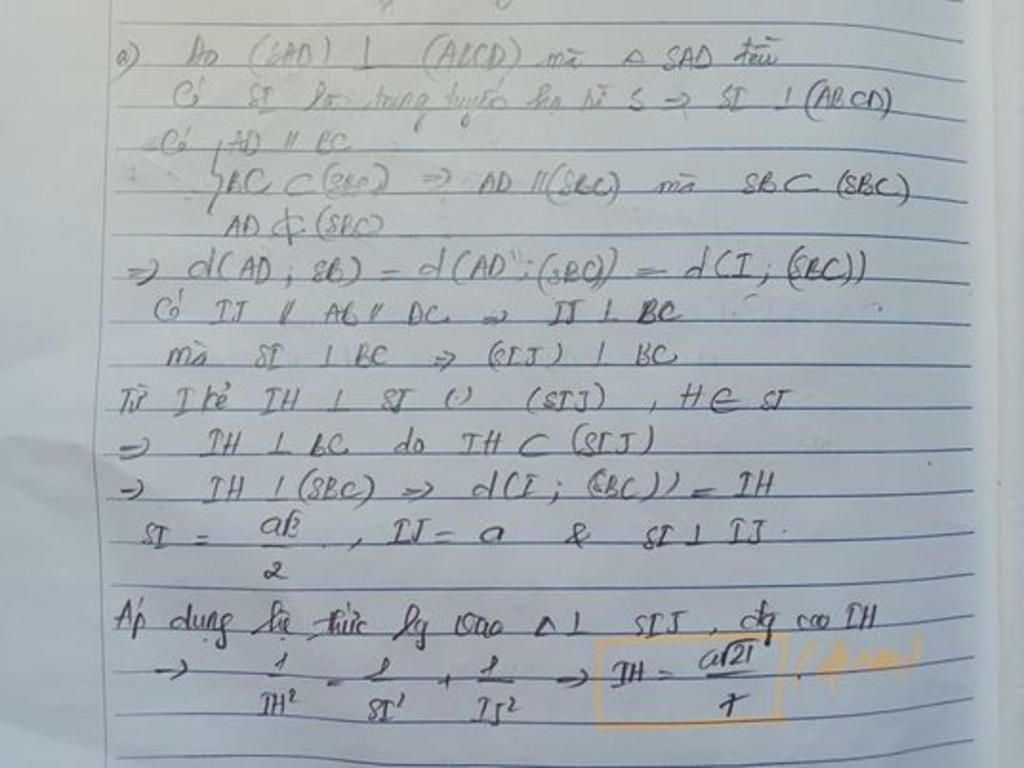 a) Do (SAD) ⊥ (ABCD) mà △ SAD đều
Có SI là trung tuyến hạ từ S → SI ⊥ (ABCD)
Có { AD // BC
BC ⊂ (SBC) ⇒ AD // (SBC) mà SB ⊂ (SBC)
AD ⊄ (SBC)
⇒ d(AD ; SB) = d(AD ; (SBC)) = d(I ; (SBC))
Có IJ // AB // DC ⇒ IJ ⊥ BC
mà SI ⊥ BC ⇒ (SIJ) ⊥ BC
Từ I kẻ IH ⊥ SJ (SIJ) , H ∈ SJ
⇒ IH ⊥ BC do IH ⊂ (SIJ)
→ IH ⊥ (SBC) ⇒ d(I ; (SBC)) = IH
SI = a√3/2 , IJ = a & SI ⊥ IJ .
Áp dụng hệ thức lg vào △ ⊥ SIJ , đg cao IH
→ 1/IH² = 1/SI² + 1/IJ² → IH = a√21/7